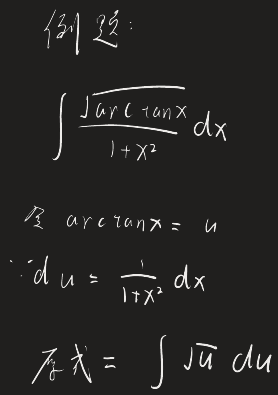 例题:
∫ √arctanx / 1+x² dx
令 arctanx = u
∵du = 1/1+x² dx
原式 = ∫ √u du